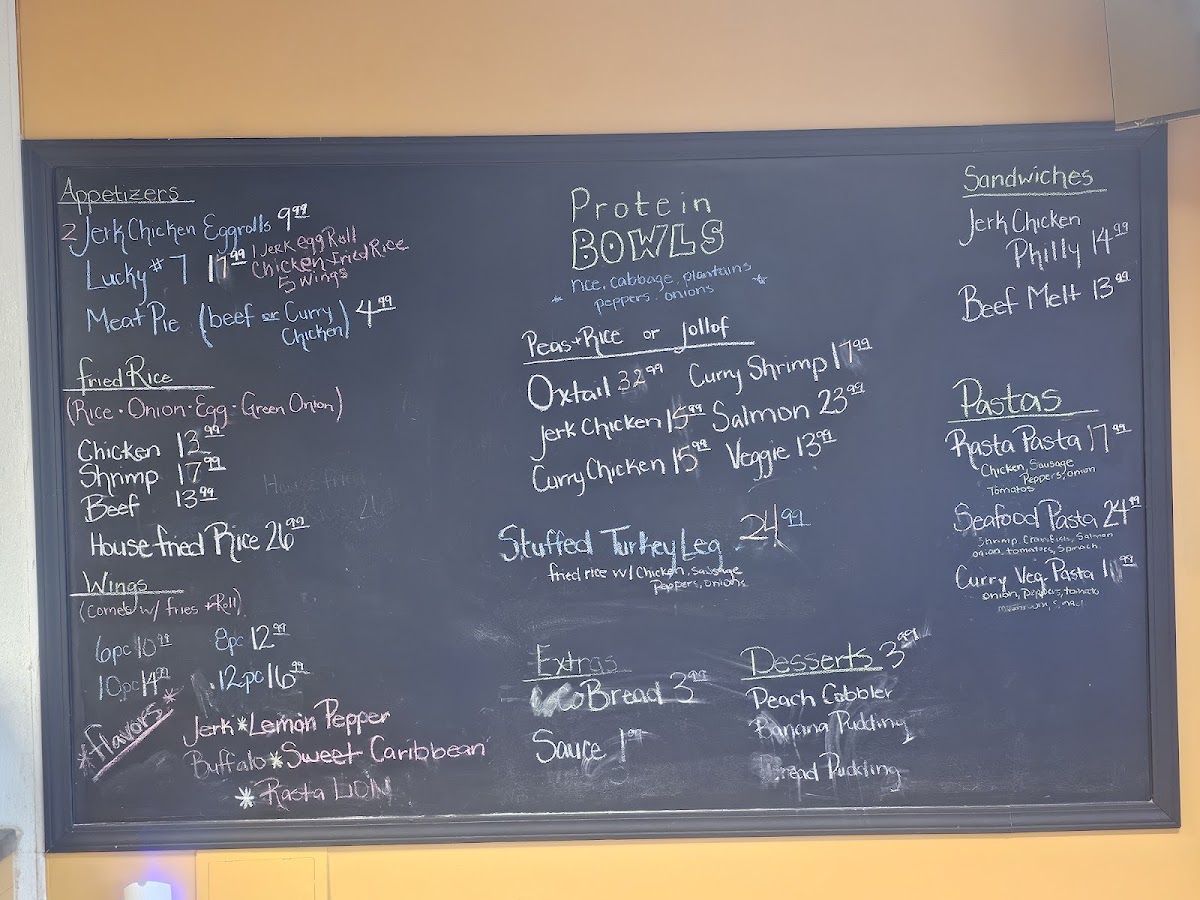 Appetizers
2 Jerk Chicken Eggrolls 9.99
Lucky #7 17.99 1 Jerk egg Roll
Chicken fried Rice
5 wings
Meat Pie (beef or Curry Chicken) 4.99
Fried Rice
(Rice · Onion · Egg · Green Onion)
Chicken 13.99
Shrimp 17.99
Beef 13.99
House fried Rice 26.99
Wings
(Comes w/ fries + Roll)
6pc 10.99 8pc 12.99
10pc 14.99 12pc 16.99
*flavors*
Jerk * Lemon Pepper
Buffalo * Sweet Caribbean
* Rasta
Protein
BOWLS
* rice, cabbage, plantains *
peppers, onions
Peas + Rice or Jollof
Oxtail 32.99 Curry Shrimp 17.99
Jerk Chicken 15.99 Salmon 23.99
Curry Chicken 15.99 Veggie 13.99
Stuffed Turkey Leg 24.99
fried rice w/ Chicken, sausage
peppers, onions
Extras
Bread 3.99
Sauce 1.99
Desserts 3.99
Peach Cobbler
Banana Pudding
Bread Pudding
Sandwiches
Jerk Chicken
Philly 14.99
Beef Melt 13.99
Pastas
Rasta Pasta 17.99
Chicken, Sausage
Peppers, onion
Tomatos
Seafood Pasta 24.99
Shrimp, Crawfish, Salmon
onion, tomatoes, Spinach
Curry Veg. Pasta
onion, peppers, tomato